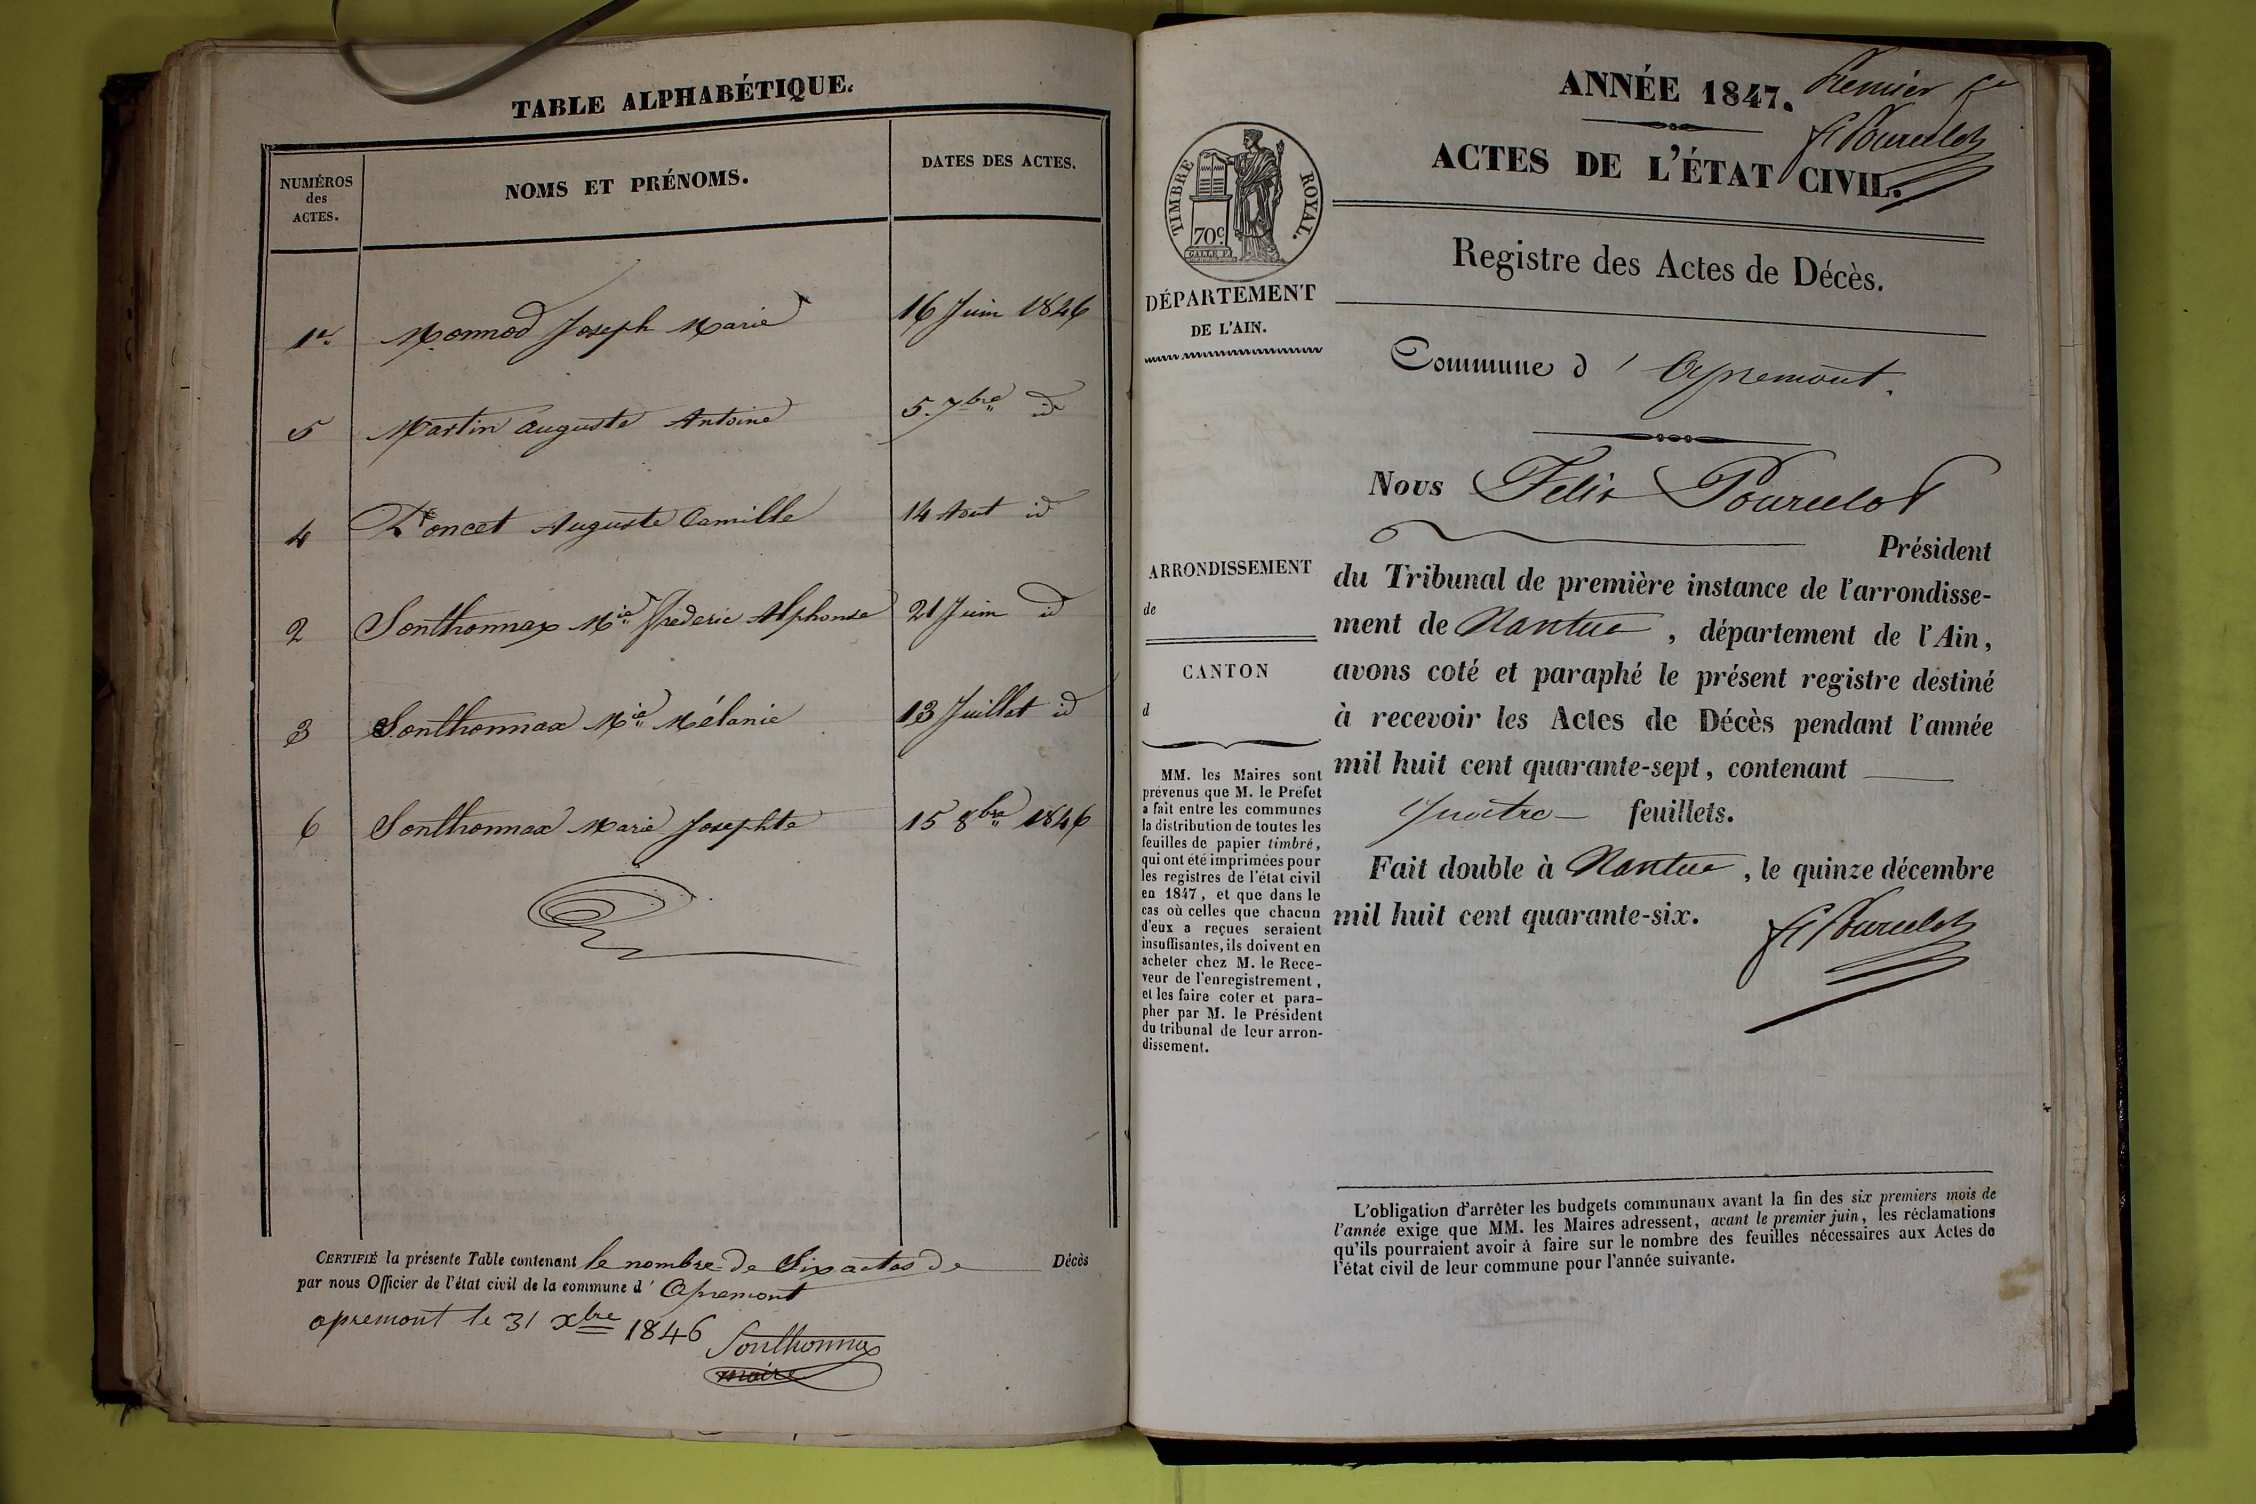 TABLE ALPHABÉTIQUE.
NUMÉROS
des
ACTES.
NOMS ET PRÉNOMS.
DATES DES ACTES.
1er Monnod Joseph Marie 16 Juin 1846
5 Martin Auguste Antoine 5 7bre id
4 Poncet Auguste Camille 14 Aout id
2 Sonthonnax Mie Frederic Alphonse 21 Juin id
3 Sonthonnax Mie Mélanie 13 Juillet id
6 Sonthonnax Marie Josephte 15 8bre 1846
CERTIFIÉ la présente Table contenant le nombre de Six actes de Décès
par nous Officier de l'état civil de la commune d' Apremont
apremont le 31 xbre 1846
Sonthonnax
maire
ANNÉE 1847.
Premier
F Pourcelot
ACTES DE L'ÉTAT CIVIL.
TIMBRE ROYAL.
70c
Registre des Actes de Décès.
DÉPARTEMENT
DE L'AIN.
Commune d' Apremont.
ARRONDISSEMENT
de
CANTON
d
MM. les Maires sont
prévenus que M. le Préfet
a fait entre les communes
la distribution de toutes les
feuilles de papier timbré,
qui ont été imprimées pour
les registres de l'état civil
en 1847, et que dans le
cas où celles que chacun
d'eux a reçues seraient
insuffisantes, ils doivent en
acheter chez M. le Rece-
veur de l'enregistrement,
et les faire coter et para-
pher par M. le Président
du tribunal de leur arron-
dissement.
Nous Felix Pourcelot
Président
du Tribunal de première instance de l'arrondisse-
ment de Nantua, département de l'Ain,
avons coté et paraphé le présent registre destiné
à recevoir les Actes de Décès pendant l'année
mil huit cent quarante-sept, contenant
quatre feuillets.
Fait double à Nantua, le quinze décembre
mil huit cent quarante-six.
F Pourcelot
L'obligation d'arrêter les budgets communaux avant la fin des six premiers mois de
l'année exige que MM. les Maires adressent, avant le premier juin, les réclamations
qu'ils pourraient avoir à faire sur le nombre des feuilles nécessaires aux Actes de
l'état civil de leur commune pour l'année suivante.